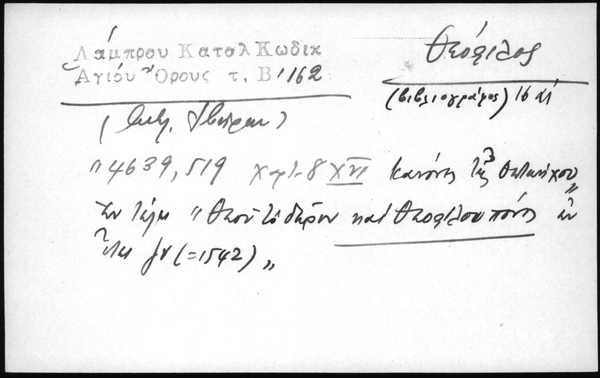 Λάμπρου Καταλ Κωδικ
Ἁγίου Ὄρους τ. Β' 162
Θεόφιλος
(βιβλιογράφος) 16 αἰ
Ἰβήρων)
"4639, 519 χαρτ. 8 XVI Κανόνες τῆς
Ἐν τέλει "Θεοῦ τὸ δῶρον καὶ Θεοφίλου πόνος ἐν
ἔτει ζν (=1542)"